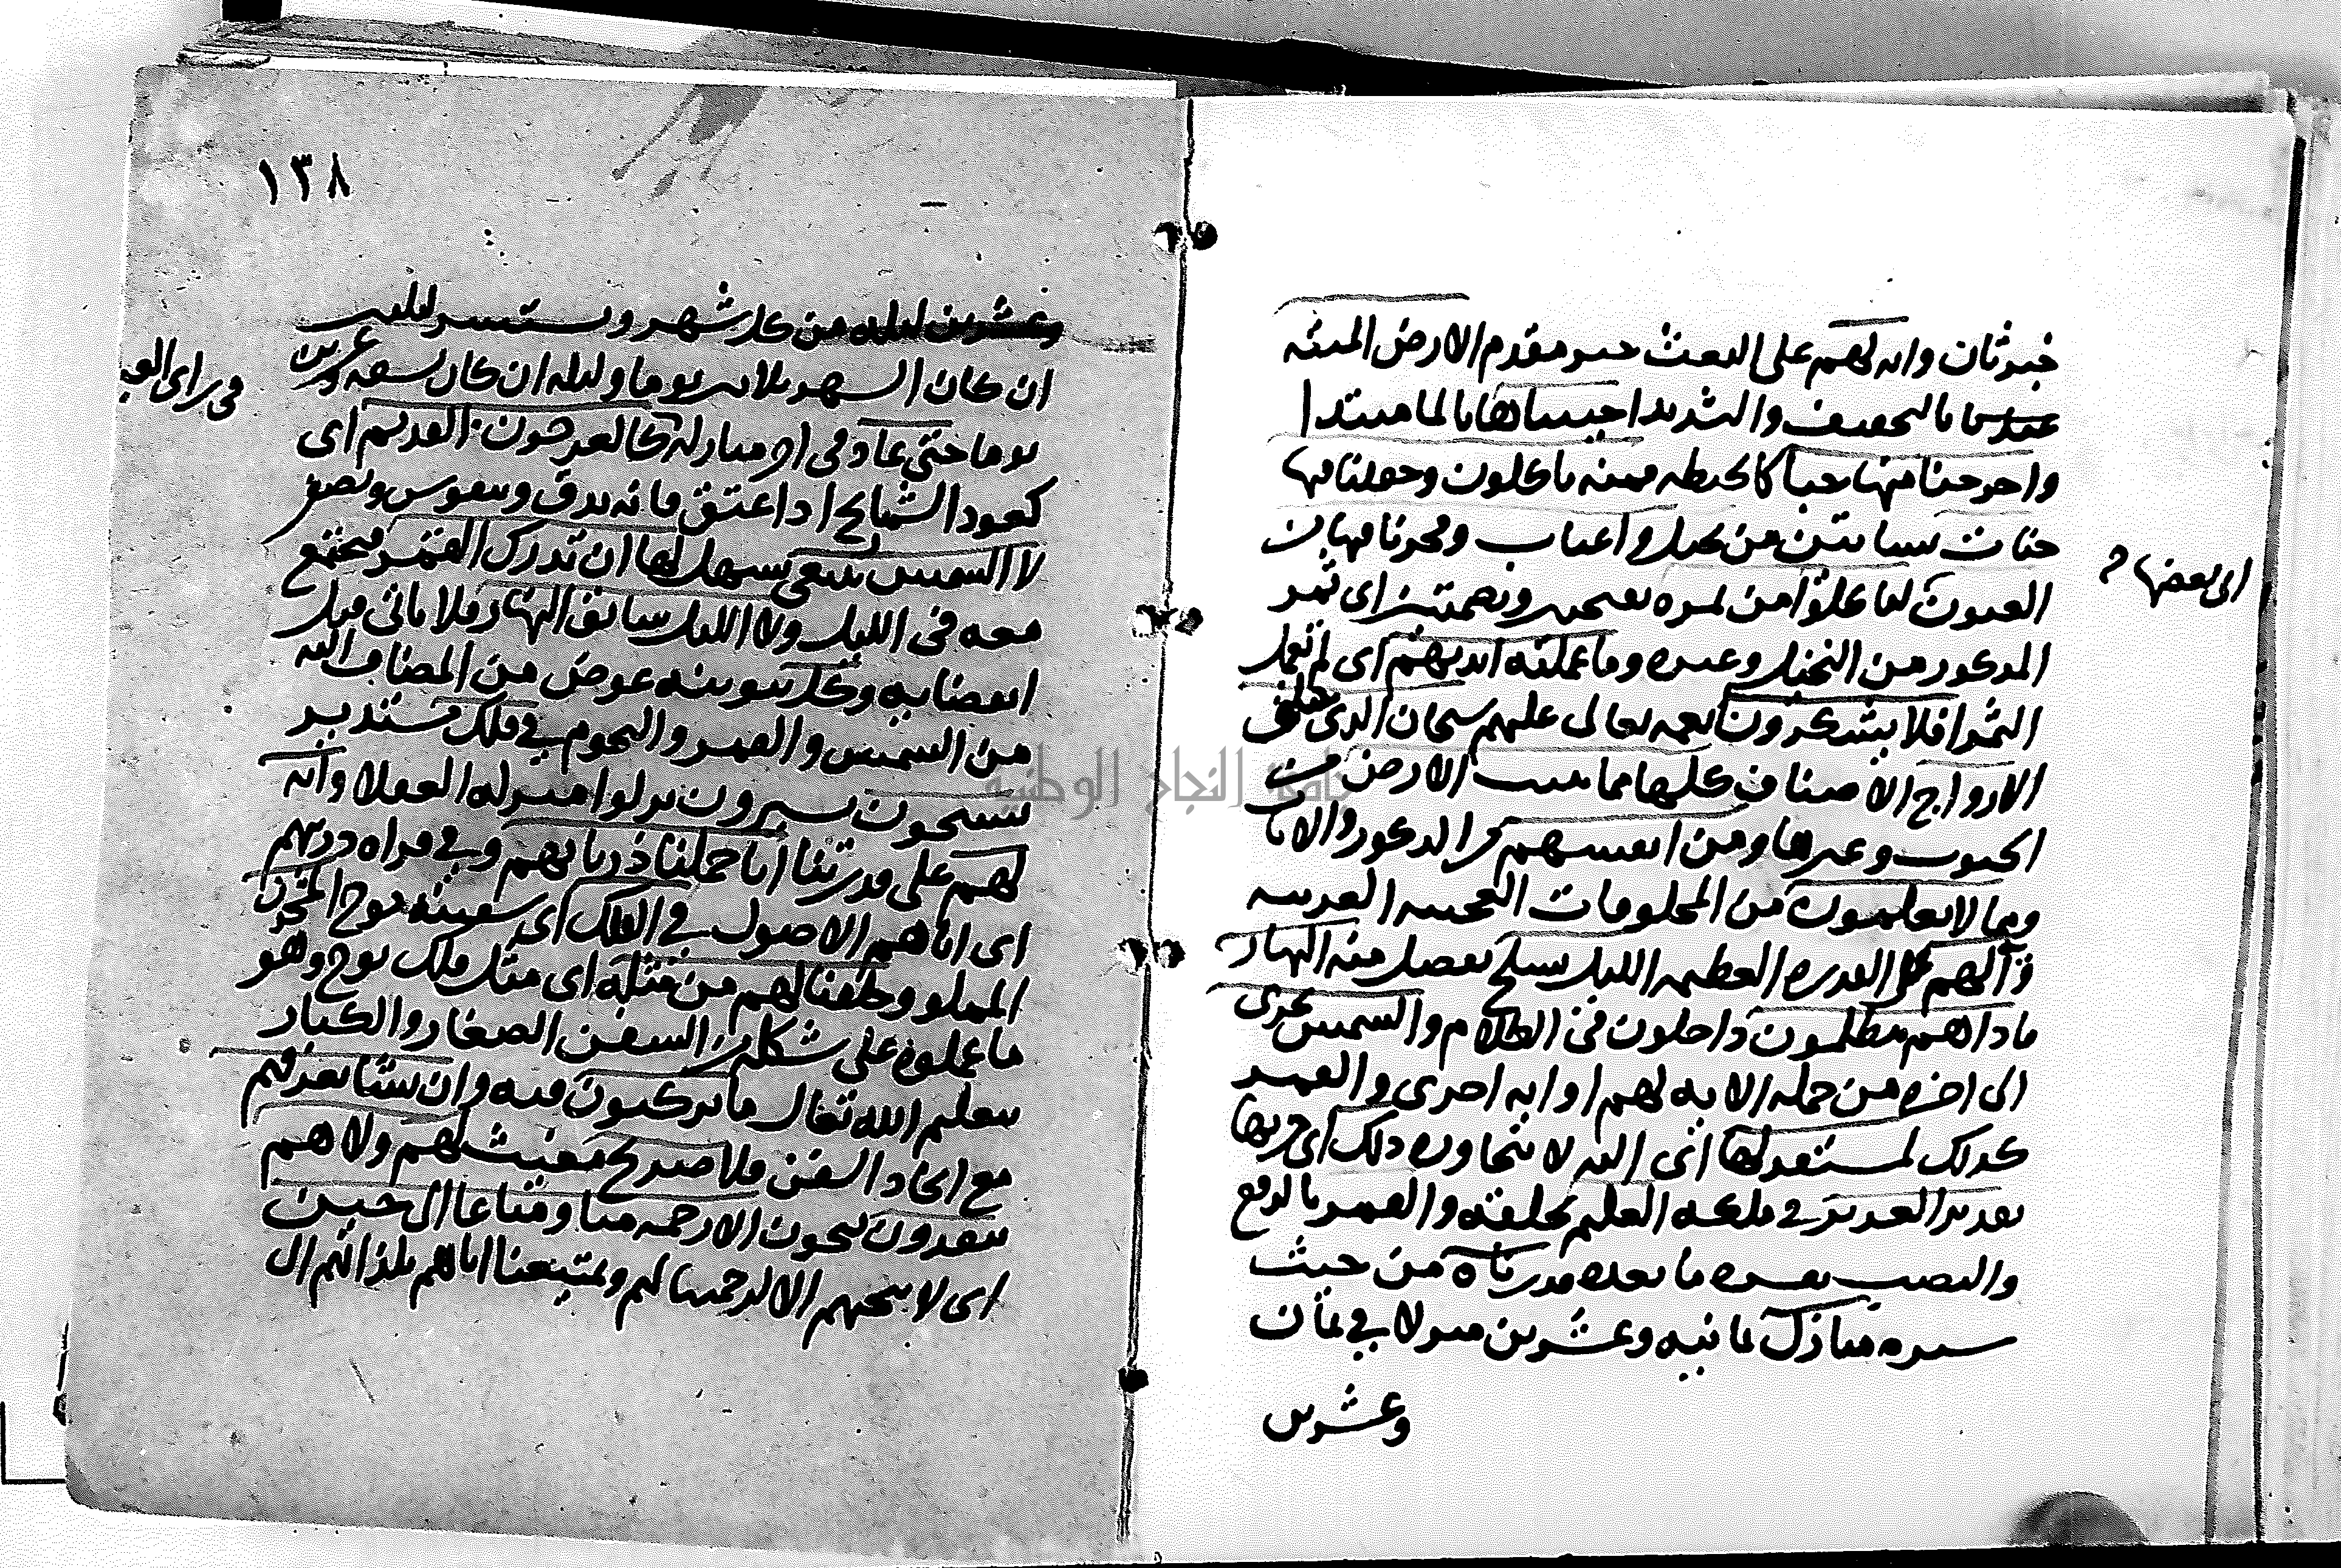 خبر ثان وايه لهم على البعث خبر مقدم الارض الميته
مبتدا بالتخفيف والتشديد احييناها بالما مبتدا
واخرجنا منها حبا كالحنطه فمنه ياكلون وجعلنا فيها
جنات بساتين من نخيل واعناب وفجرنا فيها من
العيون لياكلوا من ثمره بفتحتين وبضمتين اى ثمر
المذكور من النخيل وغيره وما عملته ايديهم اى لم تعمل
الثمر افلا يشكرون نعمه تعالى عليهم سبحان الذى خلق
الازواج الاصناف كلها مما تنبت الارض من
الحبوب وغيرها ومن انفسهم من الذكور والاناث
ومما لا يعلمون من المخلوقات العجيبه الغريبه
وايه لهم على القدره العظيمه الليل نسلخ نفصل منه النهار
فاذا هم مظلمون داخلون فى الظلام والشمس تجرى
الى اخره من جمله الايه لهم او ايه اخرى والقمر
كذلك لمستقر لها اى اليه لا تتجاوزه ذلك اى جريها
تقدير العزيز فى ملكه العليم بخلقه والقمر بالرفع
والنصب يفسره ما بعده قدرناه من حيث
سيره منازل ثمانيه وعشرين منزلا فى ثمان
وعشرين
الى بعضها
١٣٨
وعشرين ليله من كل شهر ويستتر ليلتين
ان كان الشهر ثلاثين يوما وليله ان كان تسعه وعشرين
يوما حتى عاد فى اخر منازله كالعرجون القديم اى
فى راى العين
كعود الشماريخ اذا عتق فانه يدق ويتقوس ويصفر
لا الشمس ينبغى يسهل لها ان تدرك القمر فتجتمع
معه فى الليل ولا الليل سابق النهار فلا ياتى قبل
انقضايه وكل تنوينه عوض من المضاف اليه
من الشمس والقمر والنجوم فى فلك مستدير
يسبحون يسيرون نزلوا منزله العقلا وايه
لهم على قدرتنا انا حملنا ذرياتهم وفى قراه ذريتهم
اى اباهم الاصول فى الفلك اى سفينه نوح المشحون
المملو وخلقنا لهم من مثله اى مثل فلك نوح وهو
ما عملوه على شكله من السفن الصغار والكبار
بتعليم الله تعالى ما يركبون فيه وان نشا نغرقهم
مع ايجاد السفن فلا صريخ مغيث لهم ولا هم
ينقذون ينجون الا رحمه منا ومتاعا الى حين
اى لا ينجيهم الا لرحمتنا لهم وتمتيعنا اياهم بلذاتهم الى
جامعة النجاح الوطنية